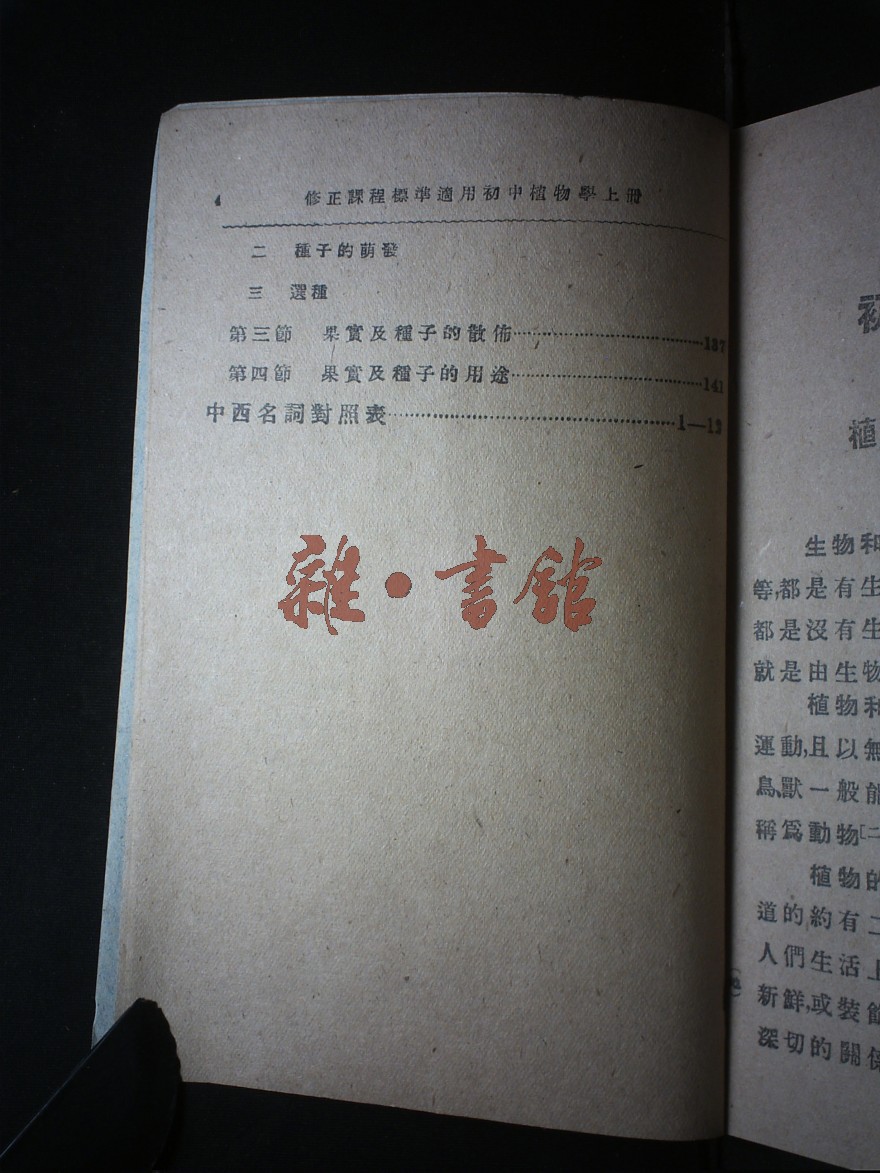 4 修正課程標準適用初中植物學上冊
二 種子的萌發
三 選種
第三節 果實及種子的散佈……………………137
第四節 果實及種子的用途……………………141
中西名詞對照表……………………1—12
雜•書館
初
植
生物和
等,都是有生
都是沒有生
就是由生物
植物和
運動,且以無
鳥、獸一般能
稱爲動物[二
植物的
道的約有二
人們生活上
新鮮,或裝飾
深切的關係